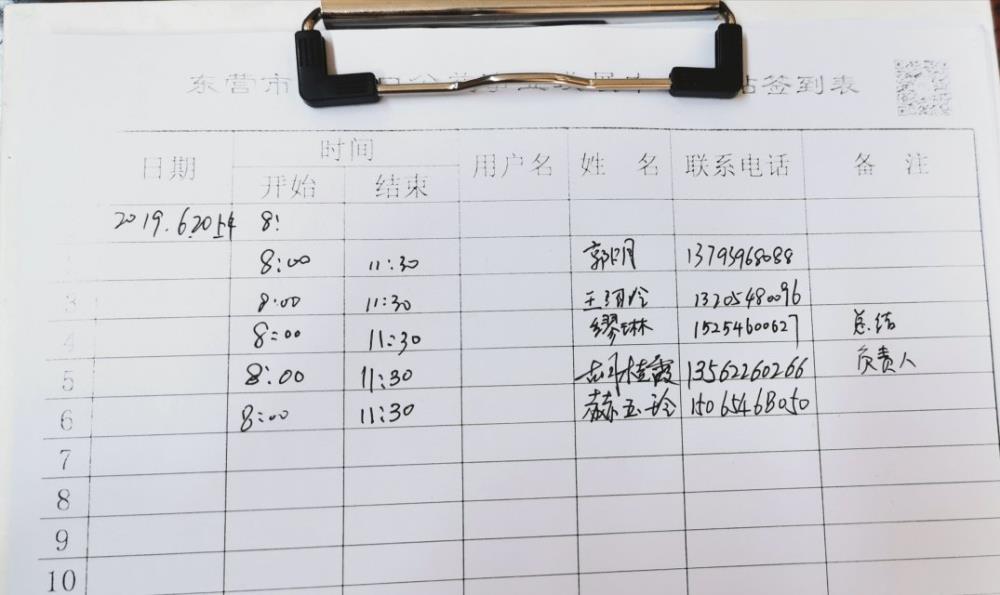 东营市 签到表
日期 时间 用户名 姓 名 联系电话 备 注
开始 结束
2019.6.20上午 8:
8:00 11:30 郭明 13793968088
3 8:00 11:30 13205480096
4 8:00 11:30 缪琳 15254600627 总结
5 8:00 11:30 桂霞 13562260266 负责人
6 8:00 11:30 赫玉玲
7
8
9
10